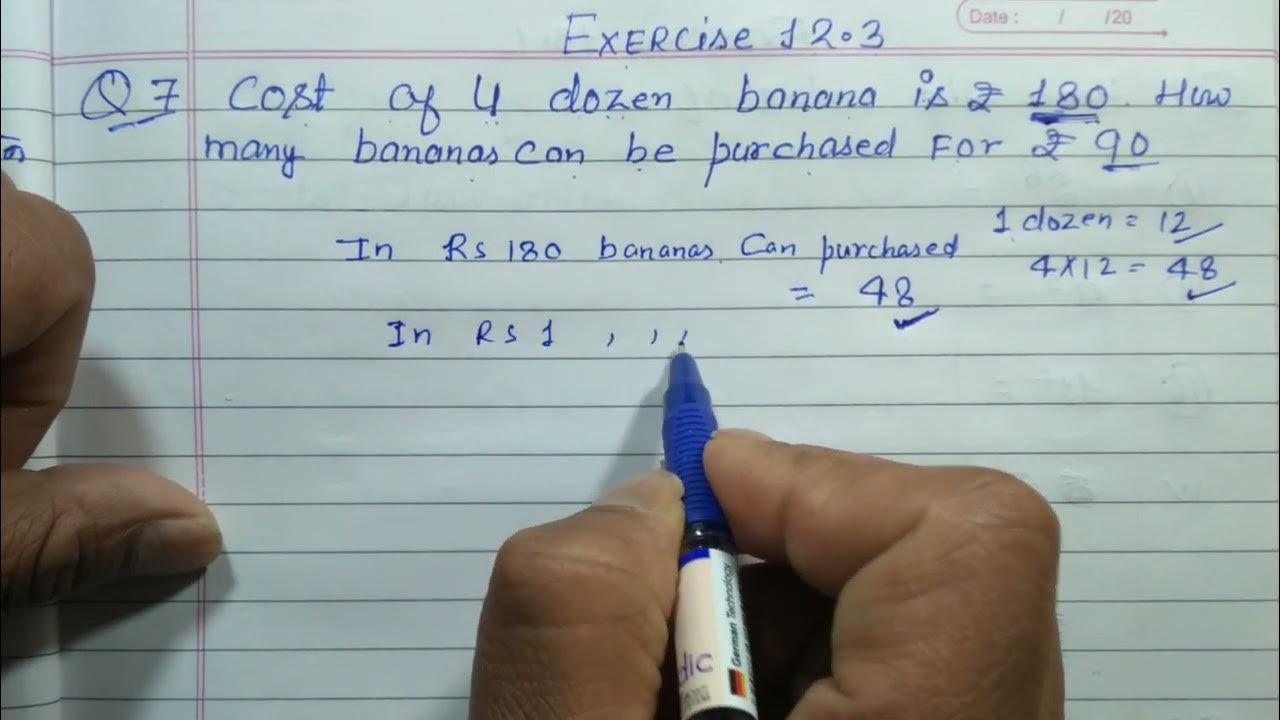 Date : / /20
Exercise 12.3
Q 7 Cost of 4 dozen banana is ₹ 180. How
many bananas can be purchased For ₹ 90
1 dozen = 12
In Rs 180 bananas Can purchased
4 × 12 = 48
= 48
In Rs 1 , , ,
German Technology
dic